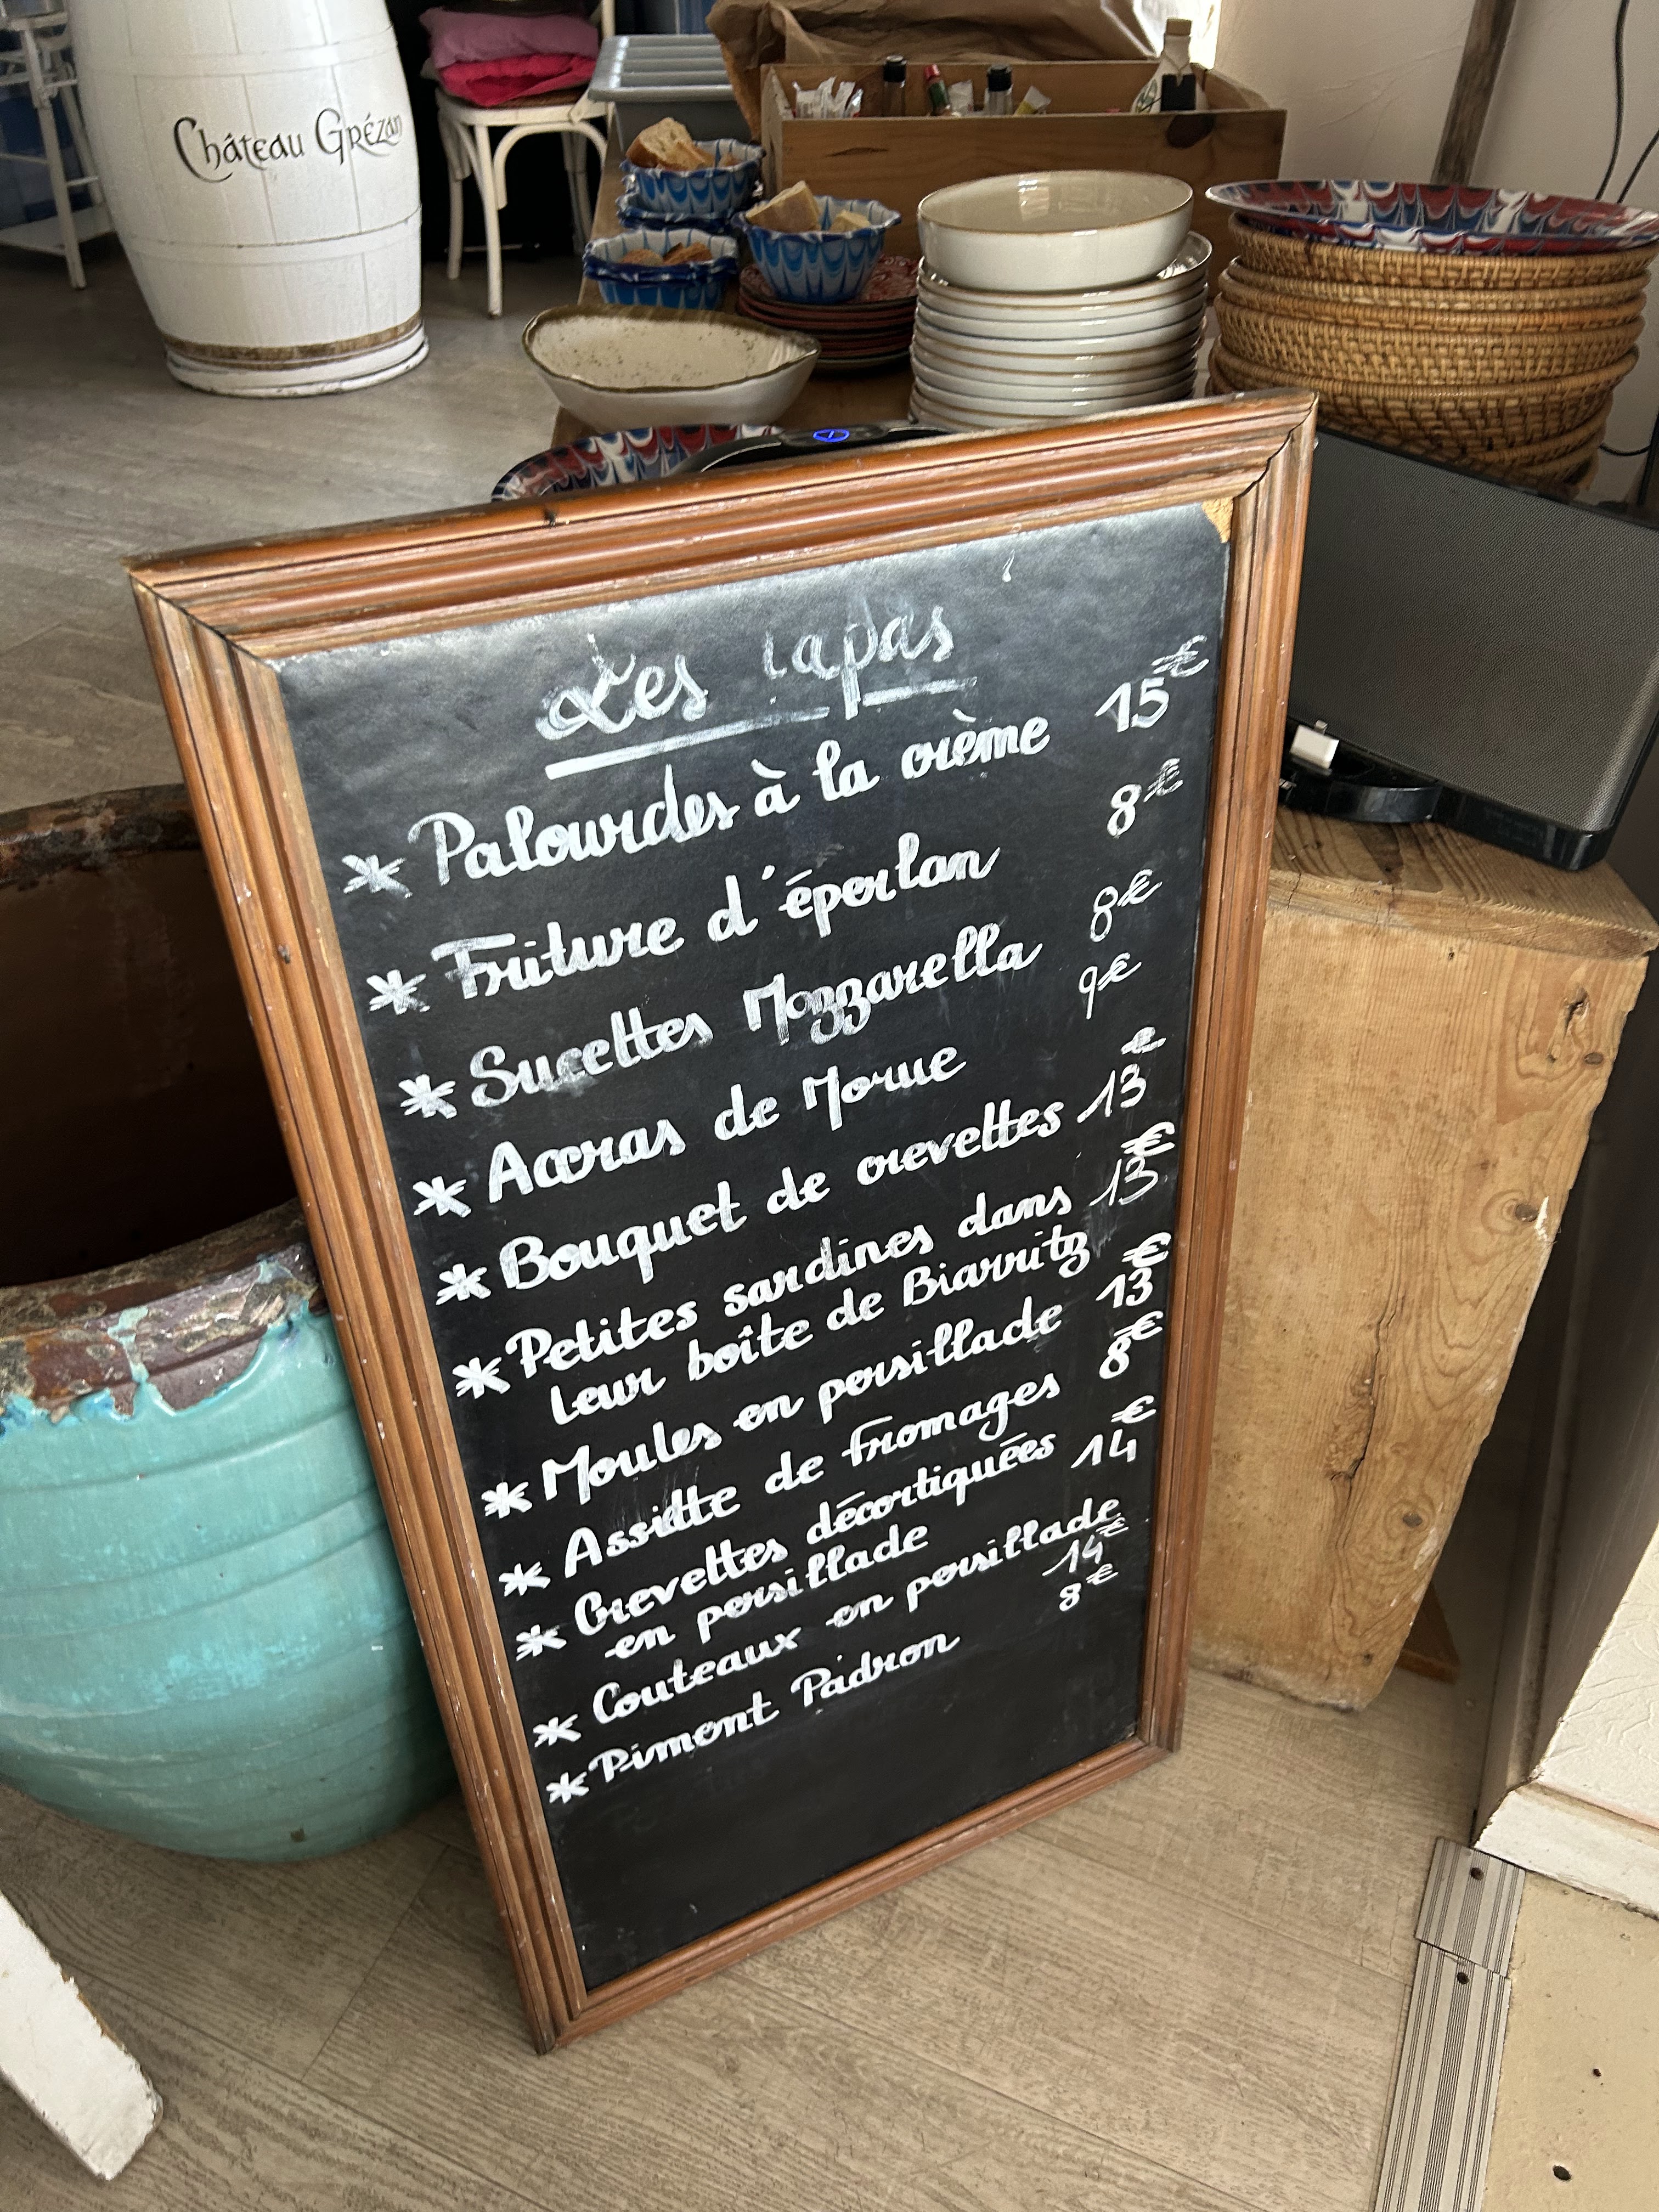 Château Grézan
Les Tapas
* Palourdes à la crème 15€
* Friture d'éperlan 8€
* Sucettes Mozzarella 8€
* Accras de Morue 9€
* Bouquet de crevettes 13€
* Petites sardines dans 13€
leur boîte de Biarritz
* Moules en persillade 13€
* Assiette de Fromages 8€
* Crevettes décortiquées 14€
en persillade
* Couteaux en persillade
14€
* Piment Padron 8€